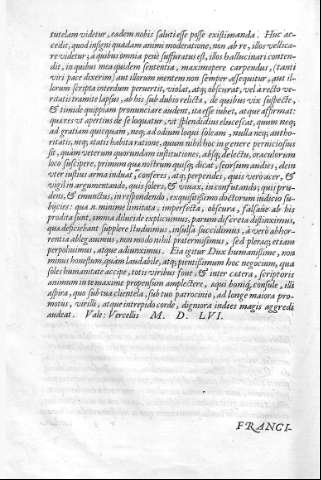 tutelam videtur, eadem nobis saluti esse posse existimanda. Huc ac-
cedit, quod insigni quadam animi moderatione, non ab re, illos vellica-
re videtur; à quibus omnia penè suffuratus est, illos hallucinari conten-
dit, in quibus mea quidem sententia, maximopere carpendus, (tanti
viri pace dixerim) aut illorum mentem non semper assequitur, aut il-
lorum scripta interdum peruertit, violat, atq; obscurat, vel à recto ve-
ritatis tramite lapsus, ab his sub dubio relicta, de quibus vix suspecte,
& timide quippiam pronunciare audent, ita esse iubet, at que affirmat:
qua res vt apertius de se loquatur, vt splendidius elucescat, quum neq;
ad gratiam quicquam, neq; ad odium loqui soleam, nulla neq; autho-
ritatis, neq; status habita ratione, quum nihil hoc in genere perniciosius
sit, quàm veterum quorundam institutiones, absq; delectu, oraculorum
loco suscipere, primum qua nostrum quisq; dicat, seorsum audies, dein
vter iustius arma induat, conferes, atq; perpendes, quis vero acer, &
vigil in argumentando, quis solers, & viuax, in confutando, quis pru-
dens, & emunctus, in respondendo, exquisitissimo doctorum iudicio su-
bijcies: qua n. minime limitata, imperfecta, obscura, falsaue ab his
prodita sunt, omnia dilucide explicuimus, parum discreta distinximus,
qua deficiebant supplere studuimus, insulsa succidimus, à verò abhor-
rentia ablegauimus, non modo nihil pratermisimus, sed pleraq; etiam
perpoliuimus, atque adiunximus. Eia igitur Dux humanissime, non
minus honestum, quàm laudabile, atq; pientissimum hoc negocium, qua
soles humanitate accipe, totis viribus foue, & inter catera, scriptoris
animum in te maxime propensum amplectere, aqui boniq; consule, illi
aspira, quo sub tua clientela, sub tuo patrocinio, ad longe maiora pro-
motus, virili, atque intrepido corde, digniora indies magis aggredi
audeat. Vale: Vercellis M. D. LVI.
FRANCI-